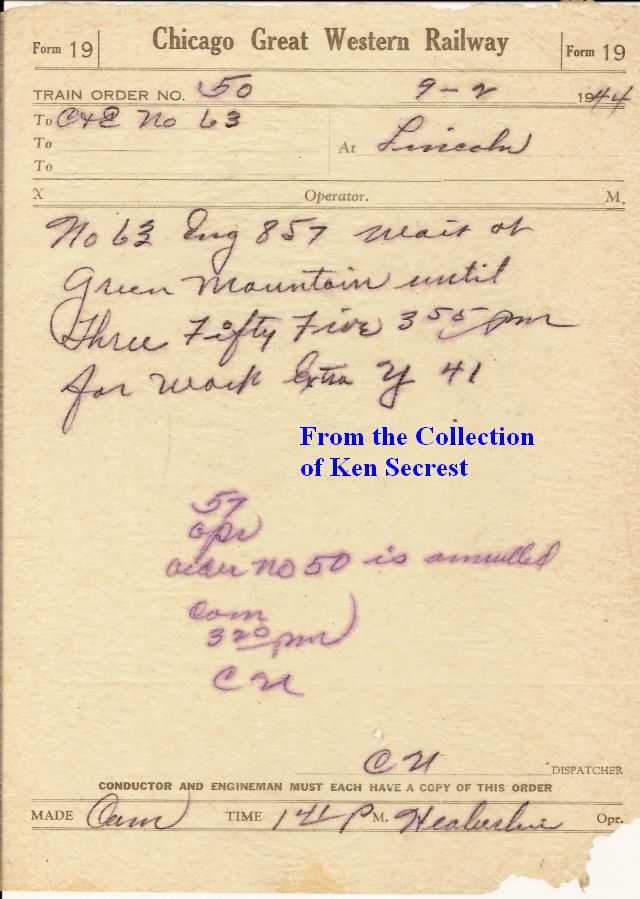 Form 19 Chicago Great Western Railway Form 19
TRAIN ORDER NO. 50 9-2 1944
To C&E No 63
To At Lincoln
To
X Operator. M.
No 63 Eng 857 wait at
Green Mountain until
Three Fifty Five 355 pm
for Work Extra Y 41
From the Collection
of Ken Secrest
57
opr
order no 50 is annulled
Com
320 pm
C U
DISPATCHER
CONDUCTOR AND ENGINEMAN MUST EACH HAVE A COPY OF THIS ORDER
MADE Com TIME 141 P M. Opr.